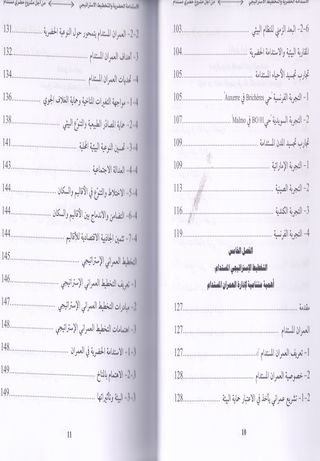 الاستدامة الحضرية والتخطيط الاستراتيجي من أجل مشروع حضري مستدام
2-6- البعد الزمني للنظام البيئي 103
المقاربة البيئية والاستدامة الحضرية 104
تجارب تجسيد الأحياء المستدامة 105
1- التجربة الفرنسية حي Brichères في Auxerre 105
2- التجربة السويدية حي BO 01 في Malmo 107
تجارب تجسيد المدن المستدامة 109
1- التجربة الإماراتية 109
2- التجربة الصينية 113
3- التجربة الكندية 116
4- التجربة الفرنسية 119
الفصل الخامس
التخطيط الإستراتيجي المستدام
أهمية متنامية لإدارة العمران المستدام
مقدمة 127
العمران المستدام 127
1- تعريف العمران المستدام 127
2- خصوصية العمران المستدام 128
1-2- تشريع عمراني يأخذ في الاعتبار حماية البيئة 128
10
الاستدامة الحضرية والتخطيط الاستراتيجي من أجل مشروع حضري مستدام
2-2- العمران المستدام يتمحور حول النوعية الحضرية 131
3- أهداف العمران المستدام 132
4- تحديات العمران المستدام 134
1-4- مواجهة التغيرات المناخية وحماية الغلاف الجوي 136
2-4- حماية المصادر الطبيعية والتنوع البيئي 138
3-4- تحسين النوعية البيئية المحلية 141
4-4- العدالة الاجتماعية 143
5-4- الاختلاط والتنوع في الأقاليم والسكان 144
6-4- التضامن والاندماج بين الأقاليم والسكان 144
7-4- تثمين الجاذبية الاقتصادية للأقاليم 144
التخطيط العمراني الإستراتيجي 145
1- تعريف التخطيط العمراني الإستراتيجي 146
2- مبادرات التخطيط العمراني الإستراتيجي 147
3- اهتمامات التخطيط العمراني الإستراتيجي 148
1-3- الاستدامة الحضرية في العمران 148
2-3- الاهتمام بالمناخ 149
3-3- البيئة وتأثيراتها 149
11